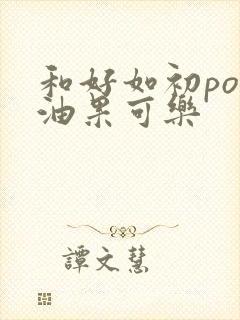 和好如初po
油果可樂
譚文慧